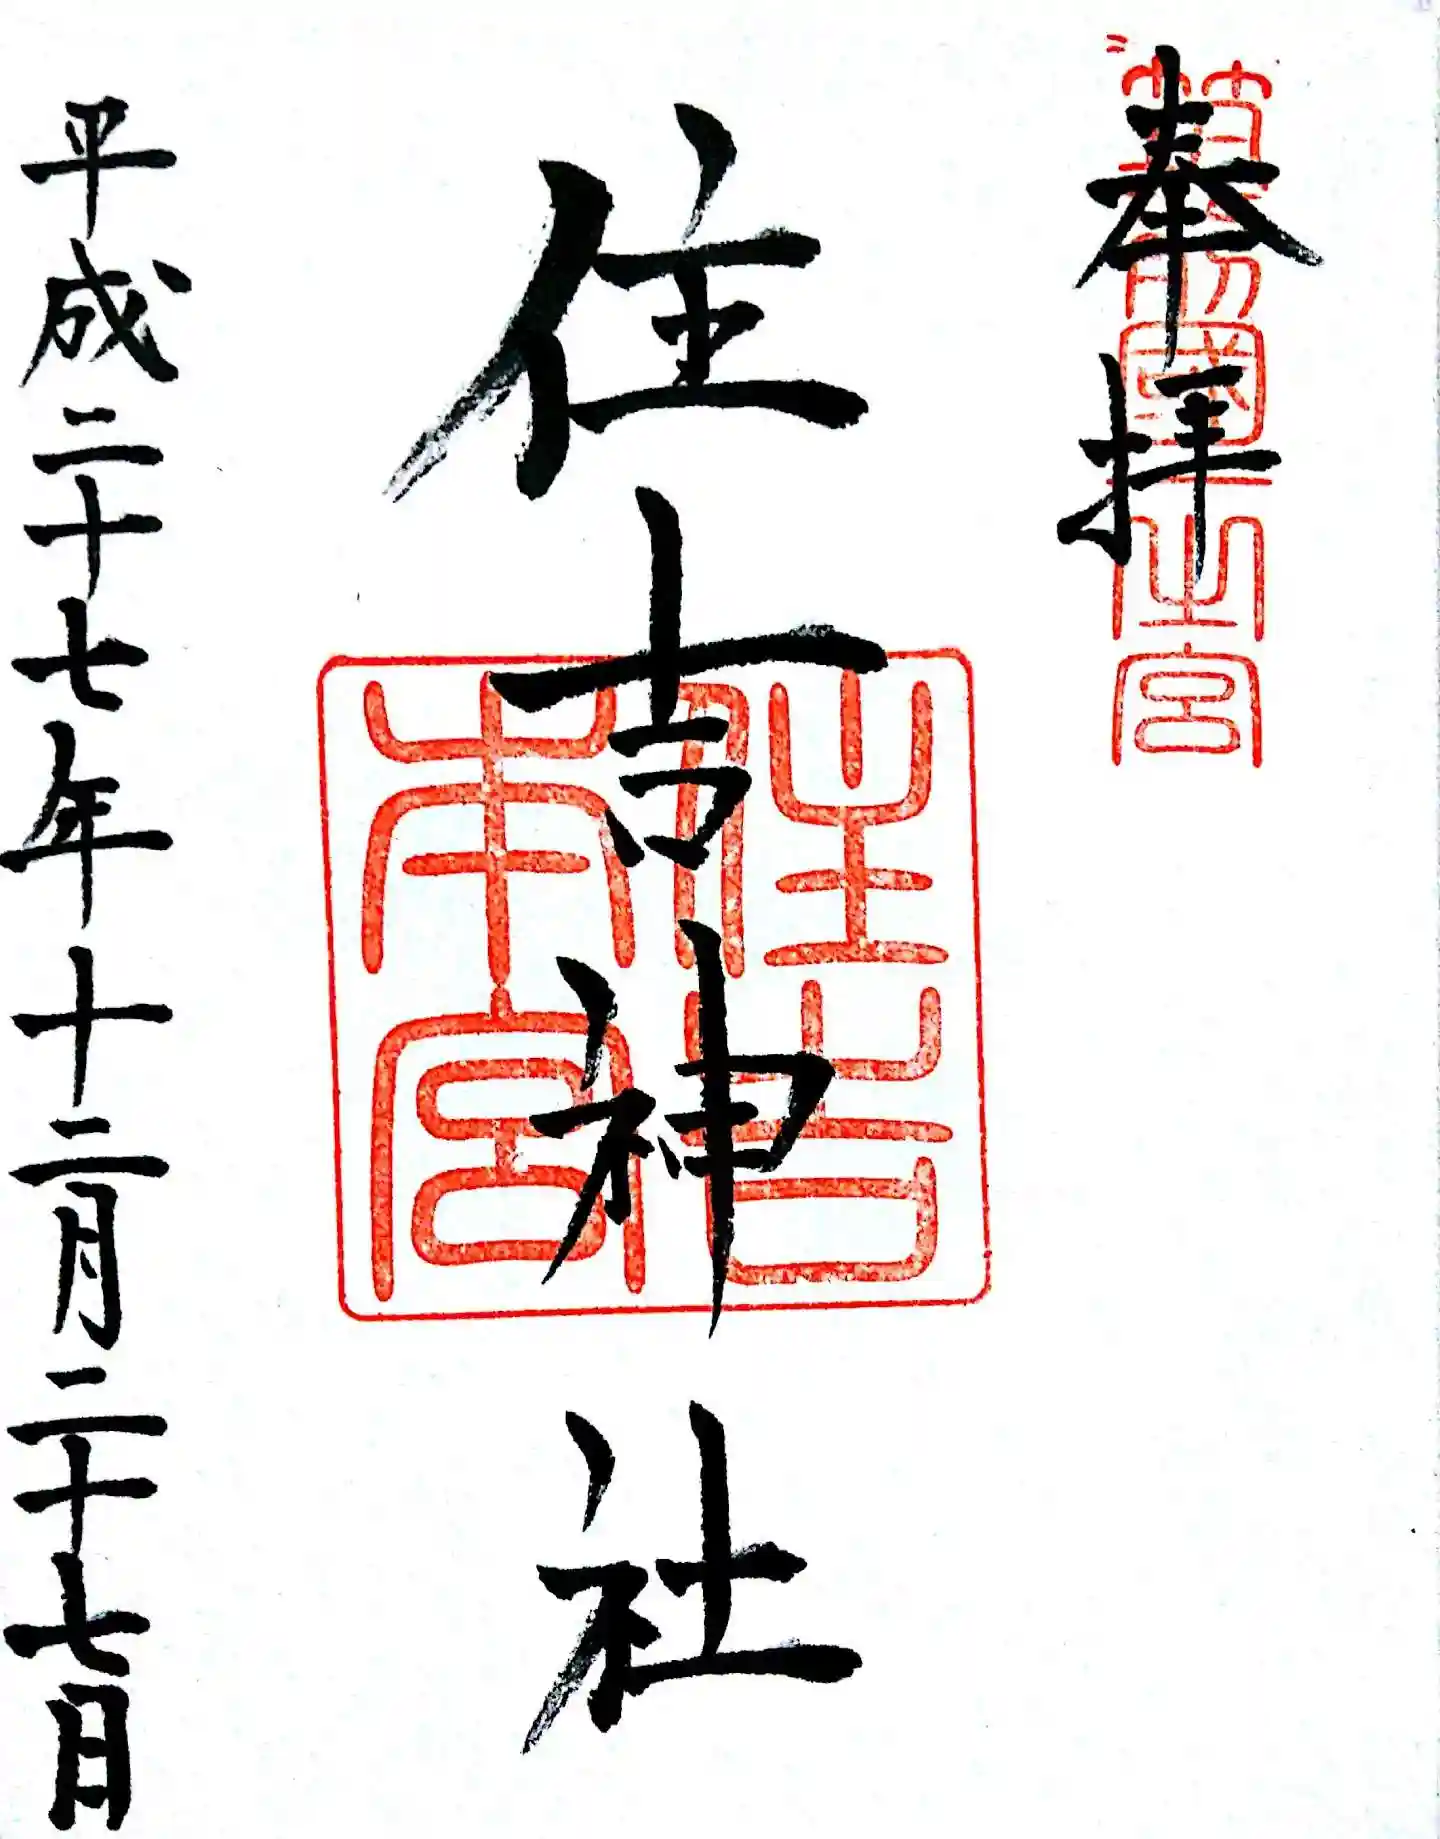 奉拝
筑前國一之宮
住吉神社
住吉本宮
平成二十七年十二月二十七日